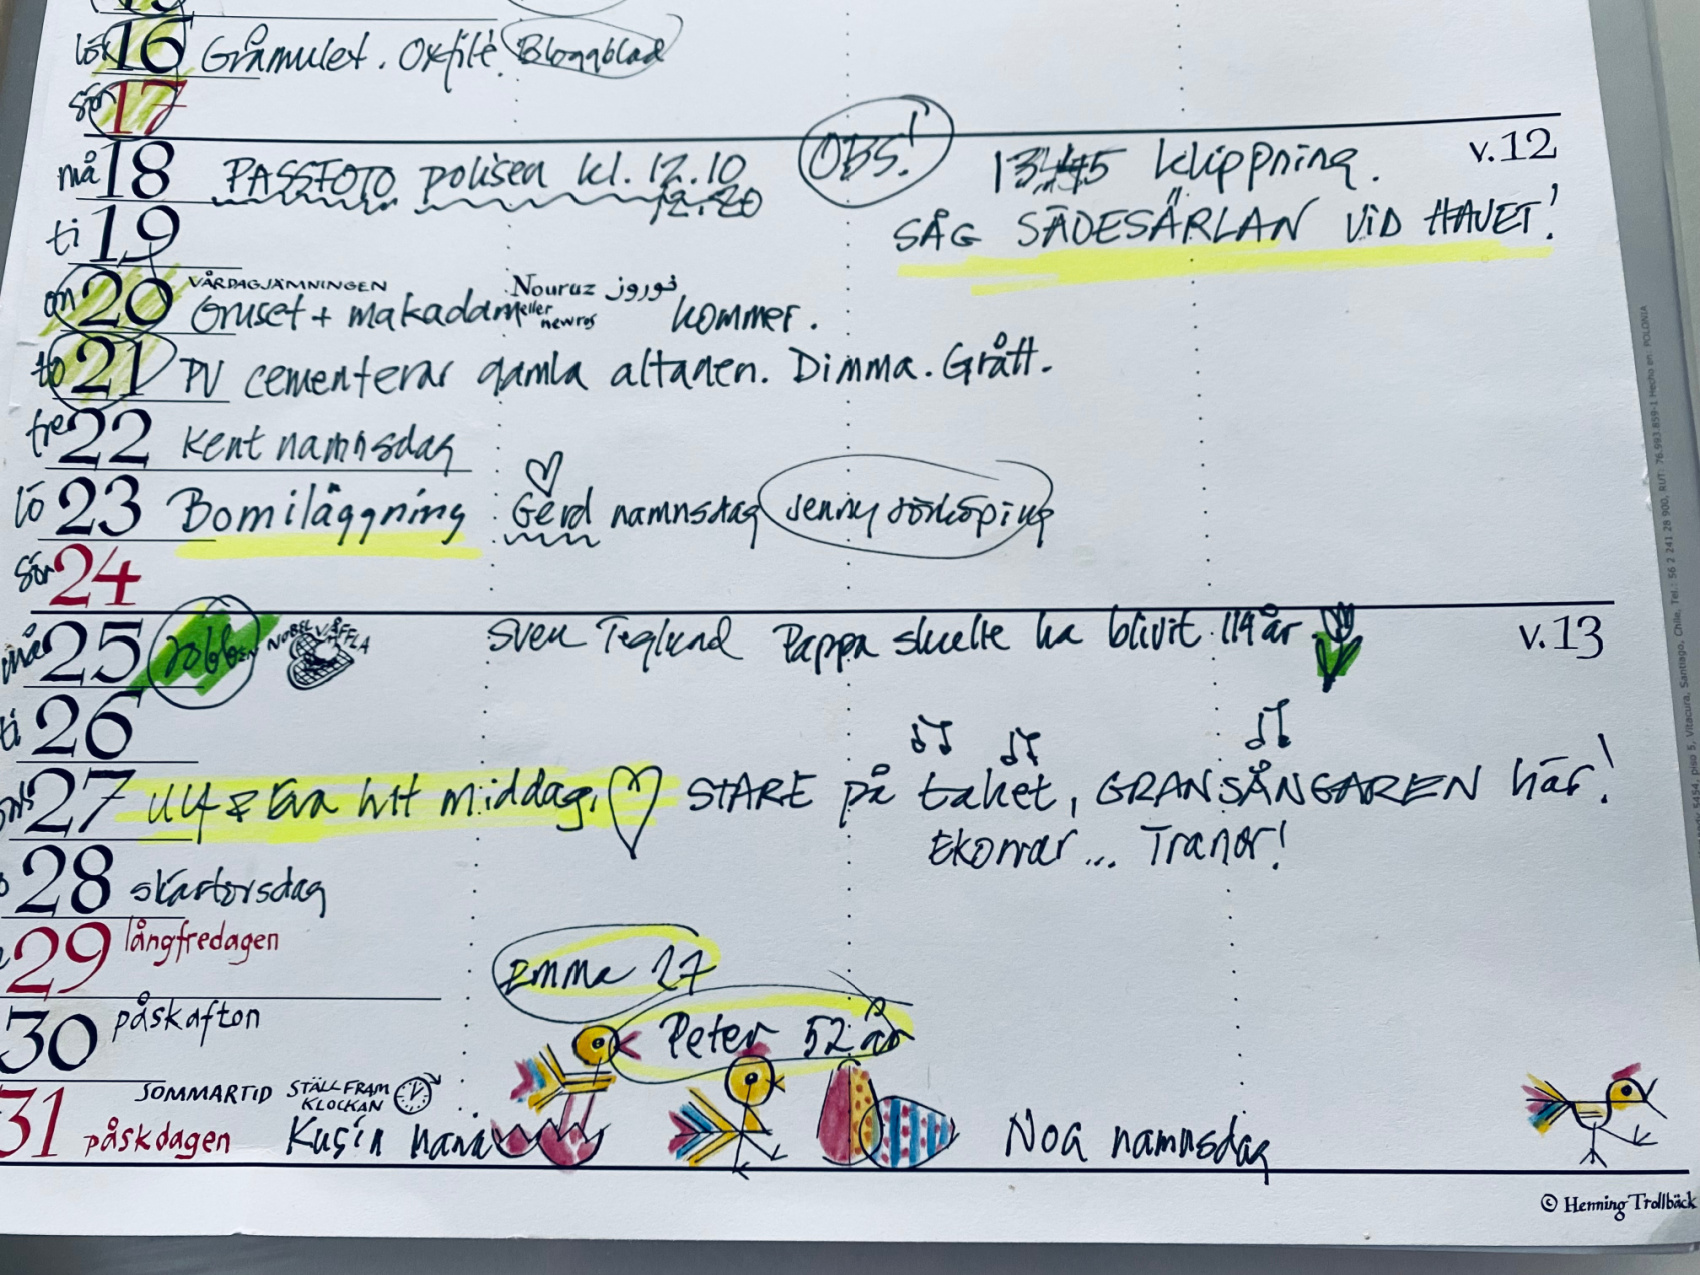 lör 16 Gråmulet. Oxfilé. Bloggblad
sön 17
må 18 PASSFOTO polisen kl. 12.10 OBS! klippning. v.12
12.20
ti 19 SÅG SÄDESÄRLAN VID HAVET!
on 20 VÅRDAGJÄMNINGEN Nouruz نوروز
Gruset + makadam eller newroz kommer.
to 21 PV cementerar gamla altanen. Dimma. Grått.
fre 22 Kent namnsdag
lö 23 Bomiläggning Gerd namnsdag Jenny Jönköping
sön 24
må 25 NOBEL VÅFFLA Sven Teglund Pappa skulle ha blivit 114 år v.13
ti 26
ons 27 Ulf & Eva hit middag, START på taket, GRANSÅNGAREN här!
Ekorrar... Tranor!
28 skärtorsdag
29 långfredagen
Emma 27
30 påskafton Peter 52 år
31 SOMMARTID STÄLL FRAM KLOCKAN
påskdagen Kusin Noa namnsdag
© Henning Trollbäck